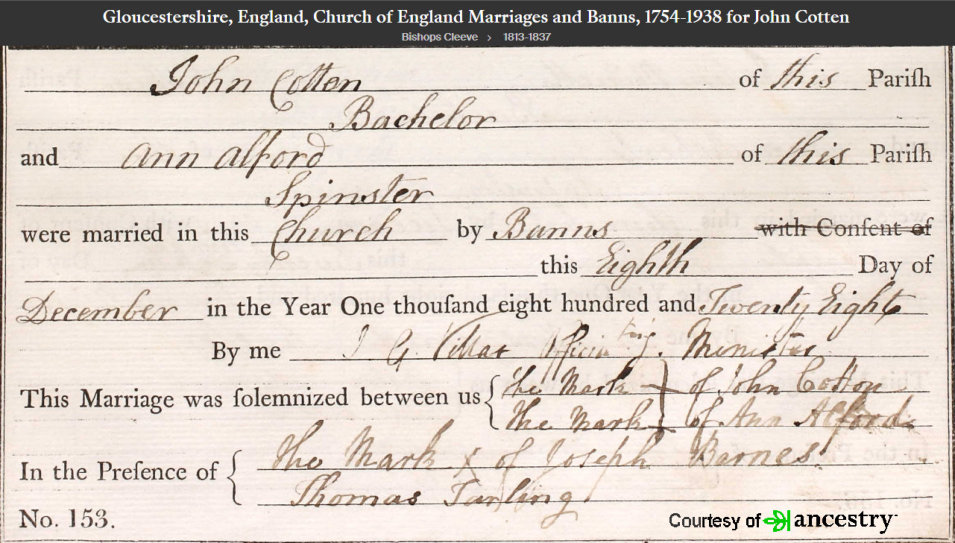 Gloucestershire, England, Church of England Marriages and Banns, 1754-1938 for John Cotten
Bishops Cleeve > 1813-1837
John Cotten of this Pariſh
Bachelor
and Ann Alford of this Pariſh
Spinster
were married in this Church by Banns with Conſent of
this Eighth Day of
December in the Year One thouſand eight hundred and Twenty Eight
By me J G Villar Officiatg. Minister
This Marriage was ſolemnized between us { the Mark + of John Cotton
the Mark + of Ann Alford
In the Preſence of { the Mark X of Joseph Barnes
Thomas Tarling
No. 153.
Courtesy of ancestry